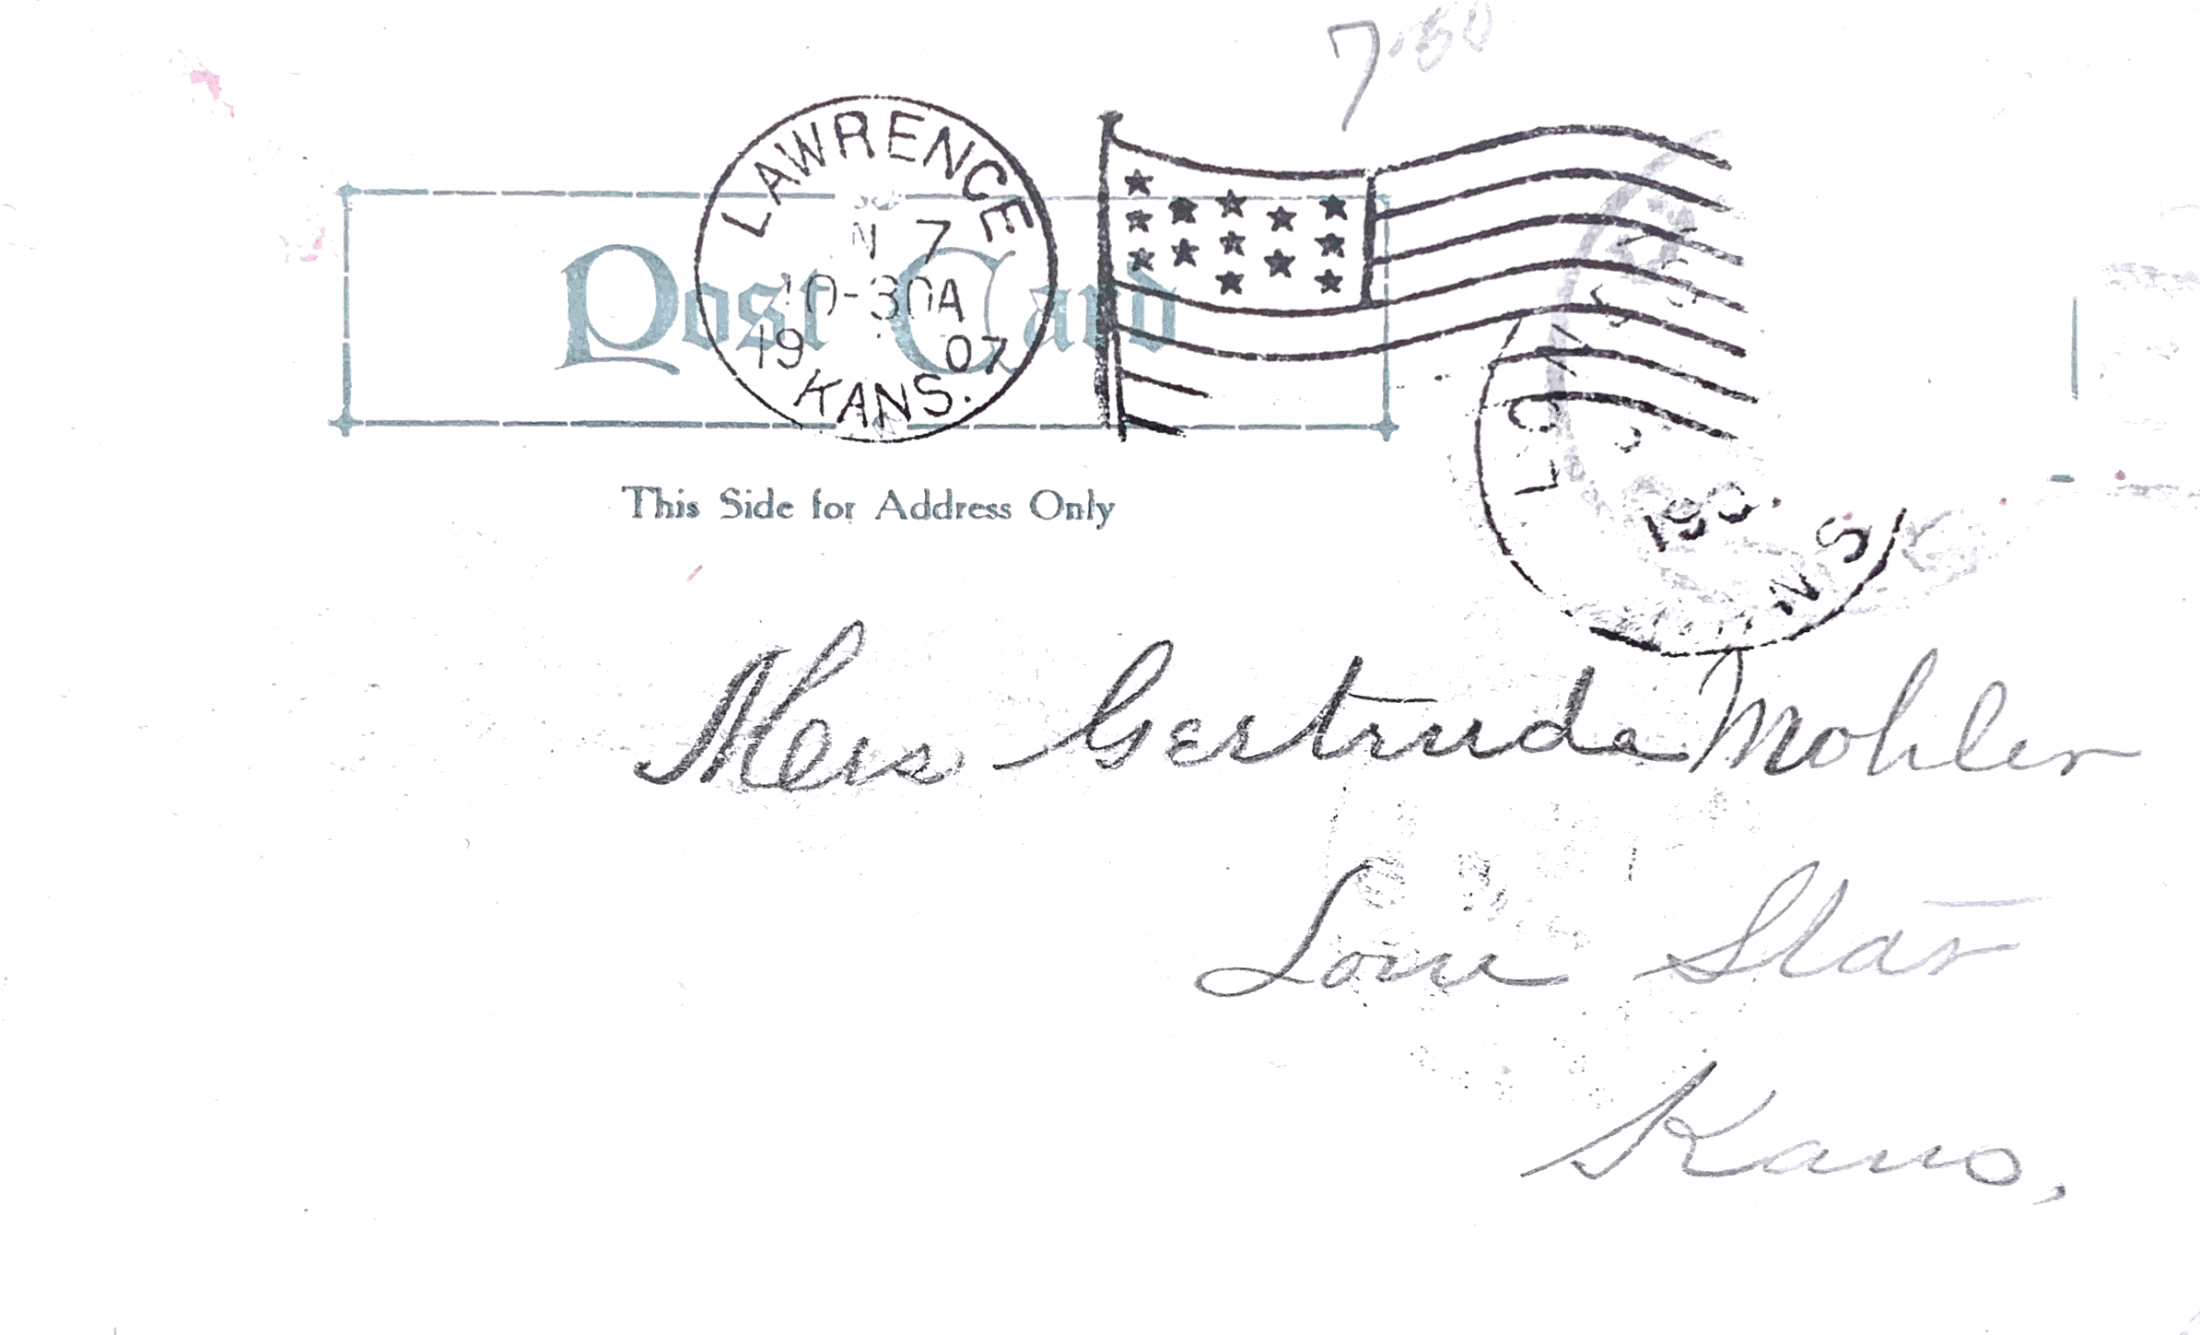 7.50
LAWRENCE
N 7
10-30A
19 07
KANS.
Post Card
This Side for Address Only
LON
190
NS
Miss Gertrude Mohler
Lone Star
Kans,